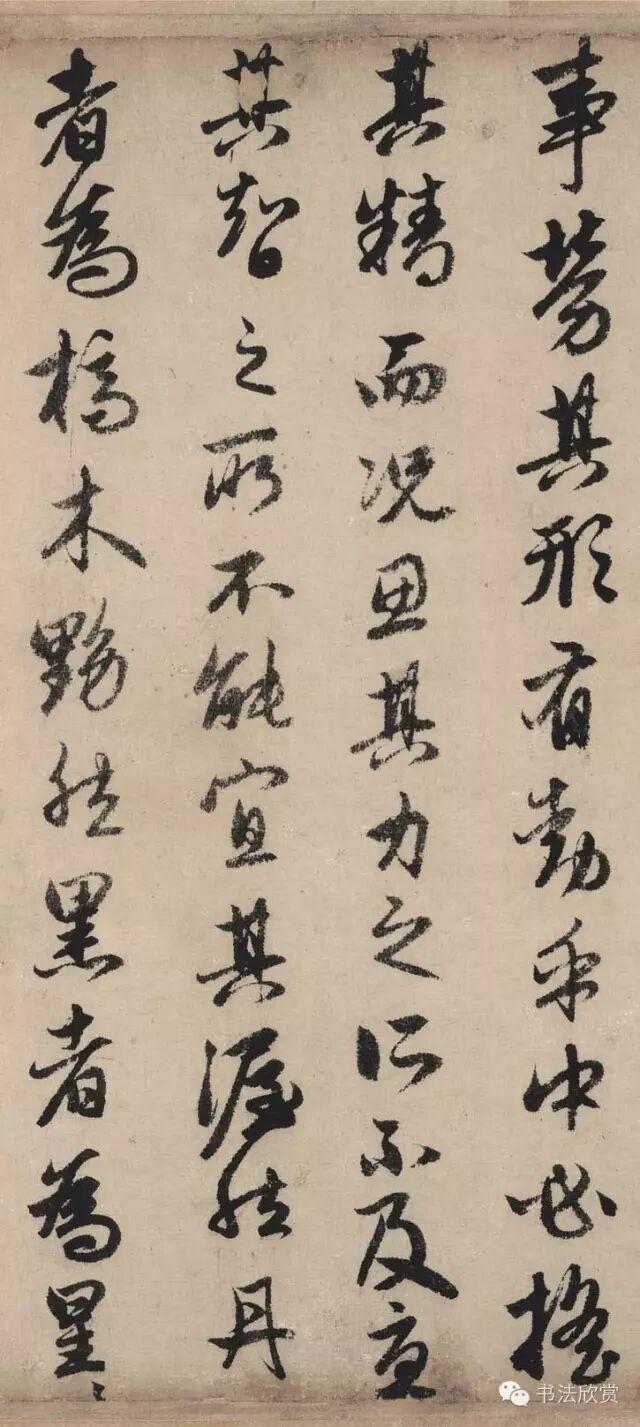 事勞其形有動乎中必搖
其精而況思其力之所不及憂
其智之所不能宜其渥然丹
者為槁木黟然黑者為星〻
书法欣赏